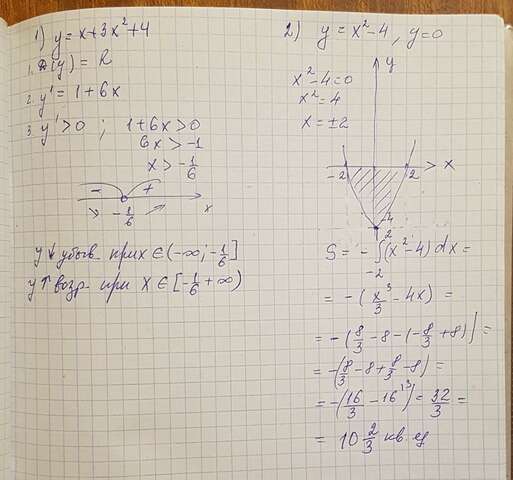 1) y = x + 3x² + 4
1. D(y) = R
2. y' = 1 + 6x
3. y' > 0 ; 1 + 6x > 0
6x > -1
x > -1/6
- +
-1/6 x
y↓ убыв. при x ∈ (-∞; -1/6]
y↑ возр. при x ∈ [-1/6 +∞)
2) y = x² - 4, y = 0
x² - 4 = 0
x² = 4
x = ±2
y
-2 2 x
-4
S = - ∫₋₂² (x² - 4) dx =
= - (x³/3 - 4x) =
= - (8/3 - 8 - (-8/3 + 8)) =
= - (8/3 - 8 + 8/3 - 8) =
= - (16/3 - 16\3) = 32/3 =
= 10 2/3 кв. ед